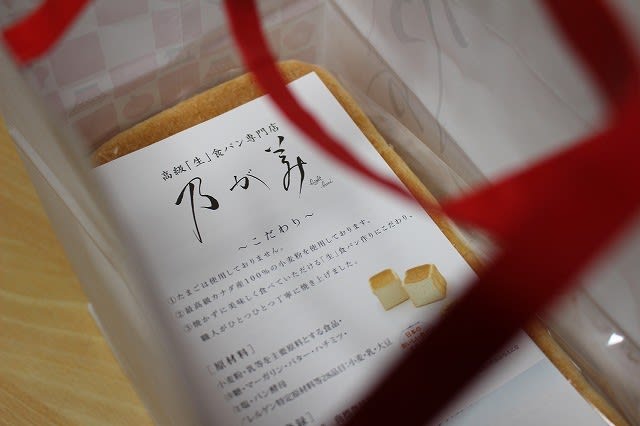 高級「生」食パン専門店
乃が美
～こだわり～
①たまごは使用しておりません。
②最高級カナダ産100%の小麦粉を使用しております。
③焼かずに美味しく食べていただける「生」食パン作りにこだわり、
職人がひとつひとつ丁寧に焼き上げました。
［原材料］
小麦粉・乳等を主要原料とする食品・
糖・マーガリン・バター・ハチミツ・
塩・パン酵母
アレルゲン(特定原材料等28品目):小麦・乳・大豆